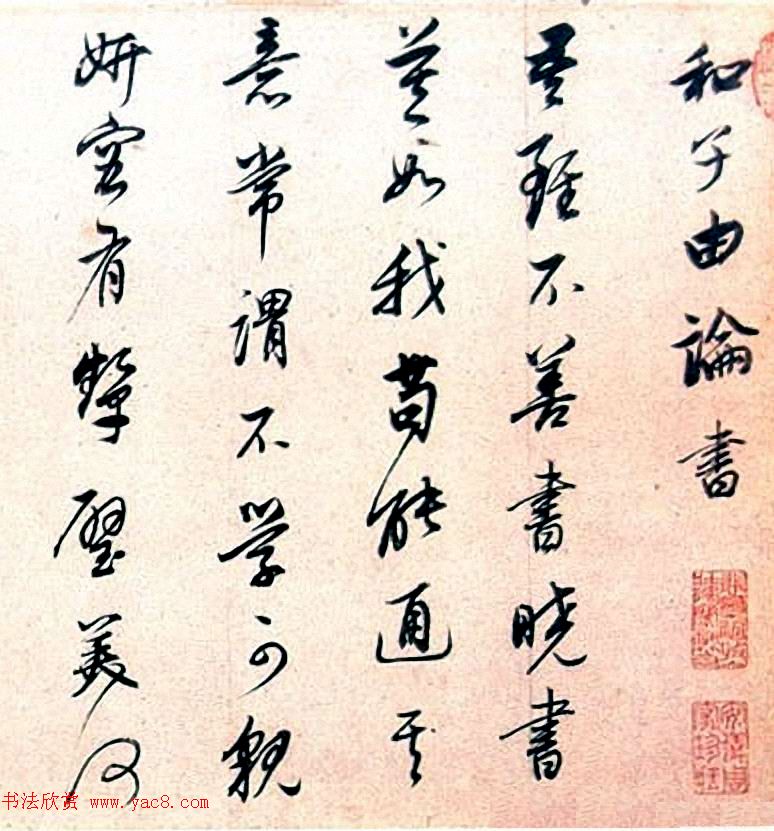 和子由論書
吾雖不善書曉書
莫如我苟能通其
意常謂不學可貌
妍容有顰璧美何
书法欣赏 www.yac8.com